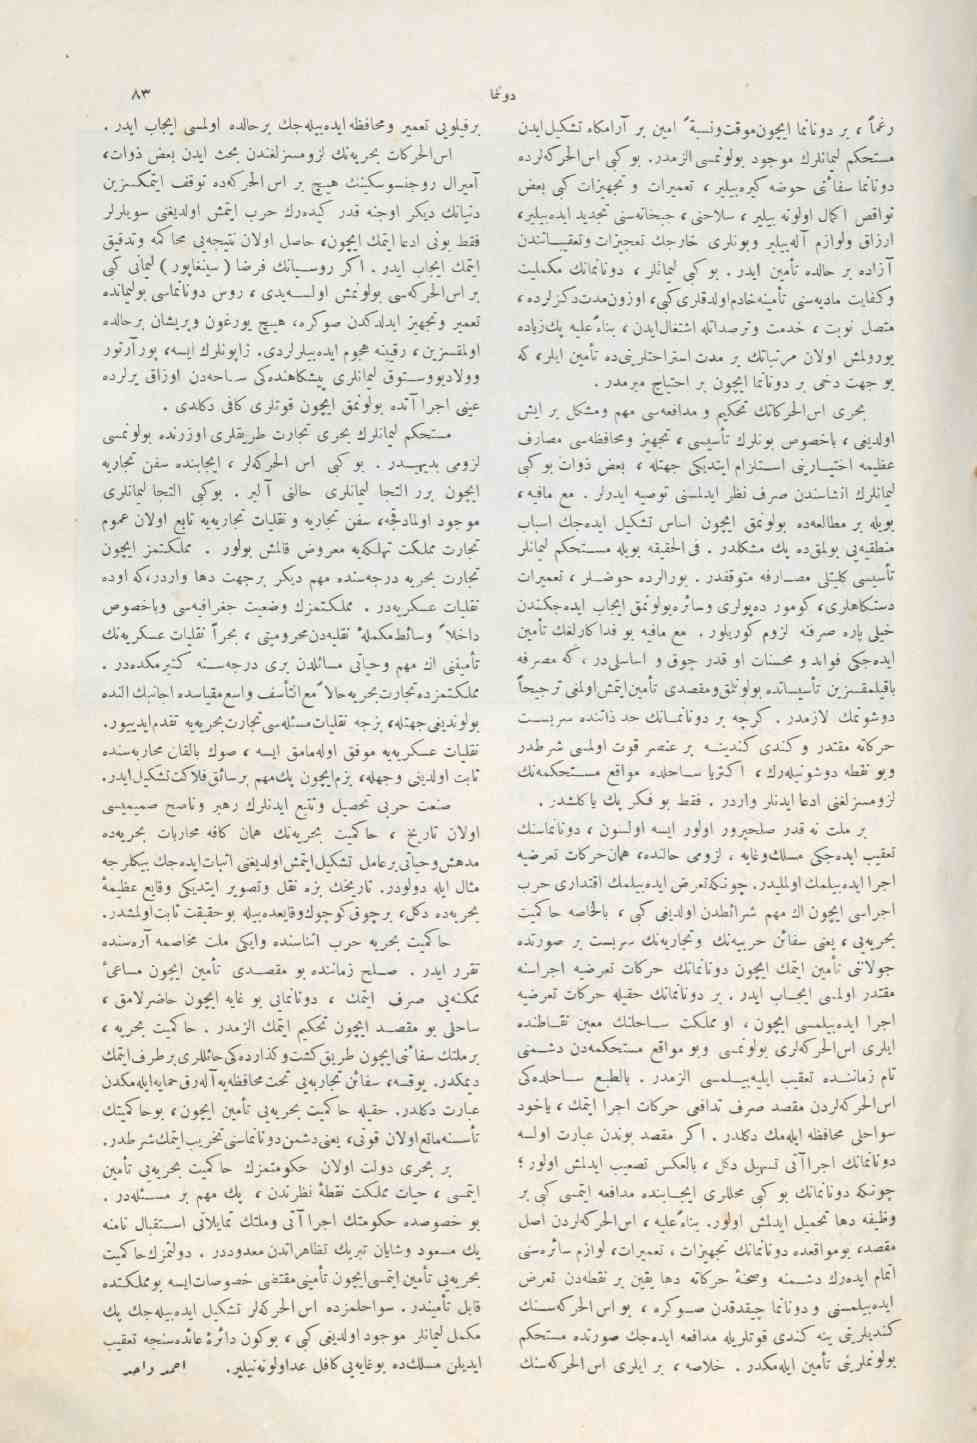 دوننما
٨٣
رغماً ، بر دوناتما ایچون موقت و نسبةً امین بر آرامگاه تشکیل ایدن
مستحکم لیمانلرك موجود بولونمسی الزمدر. بو کبی اس الحرکه لرده
دوناتما سفائنی حوضه کیره بیلیر ، تعمیرات و تجهیزات کبی بعض
نواقص اکمال اولونه بیلیر ، سلاحنی ، جبخانه سنی تجدید ایده بیلیر،
ارزاق ولوازم آله بیلیر وبونلری خارجك تعجیزات وتعقیباتندن
آزاده بر حالده تأمین ایدر . بو کبی لیمانلر ، دوناتمانك مکملیت
وکفایت مادیه سنی تأمینه خادم اولدقلری کبی، اوزون مدت دکزلرده ،
متصل نوبت ، خدمت وترصداتله اشتغال ایدن ، بناءً علیه پك زیاده
یورولمش اولان مرتباتك بر مدت استراحتلرینی ده تأمین ایلر، که
بو جهت دخی بر دوناتما ایچون بر احتیاج مبرمدر .
بحری اس الحرکاتك تحکیم و مدافعه سی مهم ومشکل بر ایش
اولدیغی ، باخصوص بونلرك تأسیسی ، تجهیز ومحافظه سی مصارف
عظیمه اختیارینی استلزام ایتدیکی جهتله ، بعض ذوات بو کبی
لیمانلرك انشاسندن صرف نظر ایدلمسنی توصیه ایدرلر . مع مافیه ،
بویله بر مطالعه ده بولونمق ایچون اساس تشکیل ایده جك اسباب
منطقیه یی بولمق ده پك مشکلدر . فی الحقیقه بویله مستحکم لیمانلر
تأسیسی کلیتلی مصارفه متوقفدر . بورالرده حوضلر ، تعمیرات
دستکاهلری، کومور ده پولری وسائره بولونمق ایجاب ایده جکندن
خیلی پاره صرفنه لزوم کوریلور . مع مافیه بو فداکارلغك تأمین
ایده جکی فوائد و محسنات او قدر چوق و اساسلی در ، که مصرفه
باقیلمقسزین تأسیساتده بولونلق ومقصدی تأمین ایتمش اولمغی ترجیحاً
دوشونمك لازمدر . کرچه بر دوناتمانك حد ذاتنده سربست
حرکاته مقتدر و کندی کندینه بر عنصر قوت اولمسی شرطدر
وبو نقطه دوشونیله رك ، اکثریا ساحلده مواقع مستحکمه نك
لزومسزلغنی ادعا ایدنلر واردر . فقط بو فکر پك یاکلشدر .
بر ملت نه قدر صلحپرور اولور ایسه اولسون ، دوناتماسنك
تعقیب ایده جکی مسلك وغایه ، لزومی حالنده، همان حرکات تعرضیه
اجرا ایده بیلمك اولملیدر. چونکه تعرض ایده بیلمك اقتداری حرب
اجراسی ایچون اك مهم شرائطدن اولدیغی کبی ، بالخاصه حاکمیت
بحریه یی ، یعنی سفائن حربیه نك وتجاریه نك سربست بر صورتده
جولاننی تأمین ایتمك ایچون دوناتمانك حرکات تعرضیه اجراسنه
مقتدر اولمسی ایجاب ایدر . بر دوناتمانك حقیله حرکات تعرضیه
اجرا ایده بیلمسی ایچون ، او مملکت ساحلنك معین نقاطنده
ایلری اس الحرکه لری بولونمسی وبو مواقع مستحکمه دن دشمنی
تام زماننده تعقیب ایلیه بیلمسی الزمدر . بالطبع ساحلده کی
اس الحرکه لردن مقصد صرف تدافعی حرکات اجرا ایتمك ، یاخود
سواحلی محافظه ایله مك دکلدر . اکر مقصد بوندن عبارت اولسه
دوناتمانك اجراآتی تسهیل دکل ، بالعکس تصعیب ایدلمش اولور ؛
چونکه دوناتمانك بو کبی محللری ایجابنده مدافعه ایتمسی کبی بر
وظیفه دها تحمیل ایدلمش اولور. بناءً علیه ، اس الحرکه لردن اصل
مقصد، بو مواقعده دوناتمانك تجهیزات ، تعمیرات، لوازم سائره سنی
اتمام ایده رك دشمنه وصحنهٔ حرکاته دها یقین بر نقطه دن تعرض
ایده بیلمسنی و دوناتما چیقدقدن صوکره ، بو اس الحرکه سنك
کندیلرینی ینه کندی قوتلریله مدافعه ایده جك صورتده مستحکم
بولونملرینی تأمین ایله مکدر . خلاصه ، بر ایلری اس الحرکه سنك
برفیلویی تعمیر ومحافظه ایده بیله جك بر حالده اولمسی ایجاب ایدر .
اس الحرکات بحریه نك لزومسزلغندن بحث ایدن بعض ذوات،
آمیرال روجنسوسکینك هیچ بر اس الحرکه ده توقف ایتمکسزین
دنیانك دیکر اوجنه قدر کیده رك حرب ایتمش اولدیغنی سویلرلر
فقط بونی ادعا ایتمك ایچون، حاصل اولان نتیجه یی محاکمه وتدقیق
ایتمك ایجاب ایدر . اکر روسیانك فرضا ( سینغاپور ) لیمانی کبی
بر اس الحرکه سی بولونمش اولسه یدی ، روس دوناتماسی بولیمانده
تعمیر وتجهیز ایدلدکدن صوکره، هیچ یورغون وپریشان برحالده
اولمقسزین ، رقیبنه هجوم ایده بیلرلردی. ژاپونلرك ایسه، پورآرتور
وولادیووستوق لیمانلری پیشکاهنده کی ساحه دن اوزاق یرلرده
عینی اجراآتده بولونمق ایچون قوتلری کافی دکلدی .
مستحکم لیمانلرك بحری تجارت طریقلری اوزرنده بولونمسی
لزومی بدیهیدر . بو کبی اس الحرکه لر ، ایجابنده سفن تجاریه
ایچون برر التجا لیمانلری حالنی آلیر . بوکبی التجا لیمانلری
موجود اولمادقجه، سفن تجاریه و نقلیات تجاریه یه تابع اولان عموم
تجارت مملکت تهلکه یه معروض قالمش بولور . مملکتمز ایچون
تجارت بحریه درجه سنده مهم دیکر برجهت دها واردر، که اوده
نقلیات عسکریه در . مملکتمزك وضعیت جغرافیه سی وباخصوص
داخلاً وسائط مکملهٔ نقلیه دن محرومیتی ، بحراً نقلیات عسکریه نك
تأمیننی اك مهم وحیاتی مسائلدن بری درجه سنه کتیرمکده در .
مملکتمزده تجارت بحریه حالاً مع التأسف واسع مقیاسده اجانبك النده
بولوندیغی جهتله، بزجه نقلیات مسئله سی تجارت بحریه یه تقدم ایدییور.
نقلیات عسکریه یه موفق اوله مامق ایسه ، صوك بالقان محاربه سنده
ثابت اولدیغی وجهله، بزم ایچون پك مهم برسائق فلاکت تشکیل ایدر.
صنعت حربی تحصیل وتتبع ایدنلرك رهبر وناصح صمیمیسی
اولان تاریخ ، حاکمیت بحریه نك همان کافه محاربات بحریه ده
مدهش وحیاتی برعامل تشکیل ایتمش اولدیغنی اثبات ایده جك بیكلرجه
مثال ایله دولودر. تاریخك بزه نقل وتصویر ایتدیکی وقایع عظیمهٔ
بحریه ده دکل، برچوق کوچوك وقایعده بیله بو حقیقت ثابت اولمشدر.
حاکمیت بحریه حرب اثناسنده وایکی ملت مخاصمه آره سنده
تقرر ایدر . صلح زماننده بو مقصدی تأمین ایچون مساعیٔ
ممکنه یی صرف ایتمك ، دوناتمایی بو غایه ایچون حاضرلامق ،
ساحلی بو مقصد ایچون تحکیم ایتمك الزمدر . حاکمیت بحریه ،
برملتك سفائنی ایچون طریق کشت وکذارده کی حائللری برطرف ایتمك
دیمکدر. یوقسه، سفائن تجاریه یی تحت محافظه یه آله رق حمایه ایله مکدن
عبارت دکلدر. حقیله حاکمیت بحریه یی تأمین ایچون، بوحاکمیتك
تأسسنه مانع اولان قوتی، یعنی دشمن دوناتماسنی تخریب ایتمك شرطدر.
بر بحری دولت اولان حکومتمزك حاکمیت بحریه یی تأمین
ایتمسی ، حیات مملکت نقطهٔ نظرندن ، پك مهم بر مسئله در .
بو خصوصده حکومتك اجراآتی وملتك تمایلاتی استقبال نامنه
پك مسعود وشایان تبریك تظاهراتدن معدوددر . دولتمزك حاکمیت
بحریه یی تأمین ایتمسی ایچون تأمینی مقتضی خصوصات ایسه بو مملکتده
قابل تأمیندر . سواحلمزده اس الحرکه لر تشکیل ایده بیله جك پك
مکمل لیمانلر موجود اولدیغی کبی ، بوکون دائرهٔ عائده سنجه تعقیب
ایدیلن مسلك ده بوغایه یی کافل عد اولونه بیلیر. احمد واحد